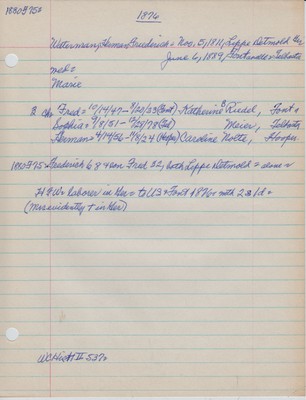 1880#758
1876
Waterman, Herman Frederick = Nov. 5, 1811, Lippe Detmold Ger
June 6, 1889, Fontanelle = Telbasta
med =
Marie
3 chn Fred = 10/19/47 - 9/20/23 (Font) Katherine B Riedel, Font =
Sophia = 9/8/51 - 12/29/78 (Tel) Meier, Telbasta
Herman = 4/14/56 - 4/8/24 (Hooper) Caroline Nolte, Hooper
1880#75: Frederick 68 + son Fred 32, both Lippe Detmold = alone =
HFW = laborer in Ger = to US + Font 1876 = with 2s 1d =
(Mrs evidently + in Ger)
WCHist II 537 =